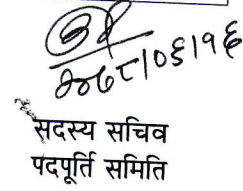 २०७८।०६।१६
सदस्य सचिव
पदपूर्ति समिति